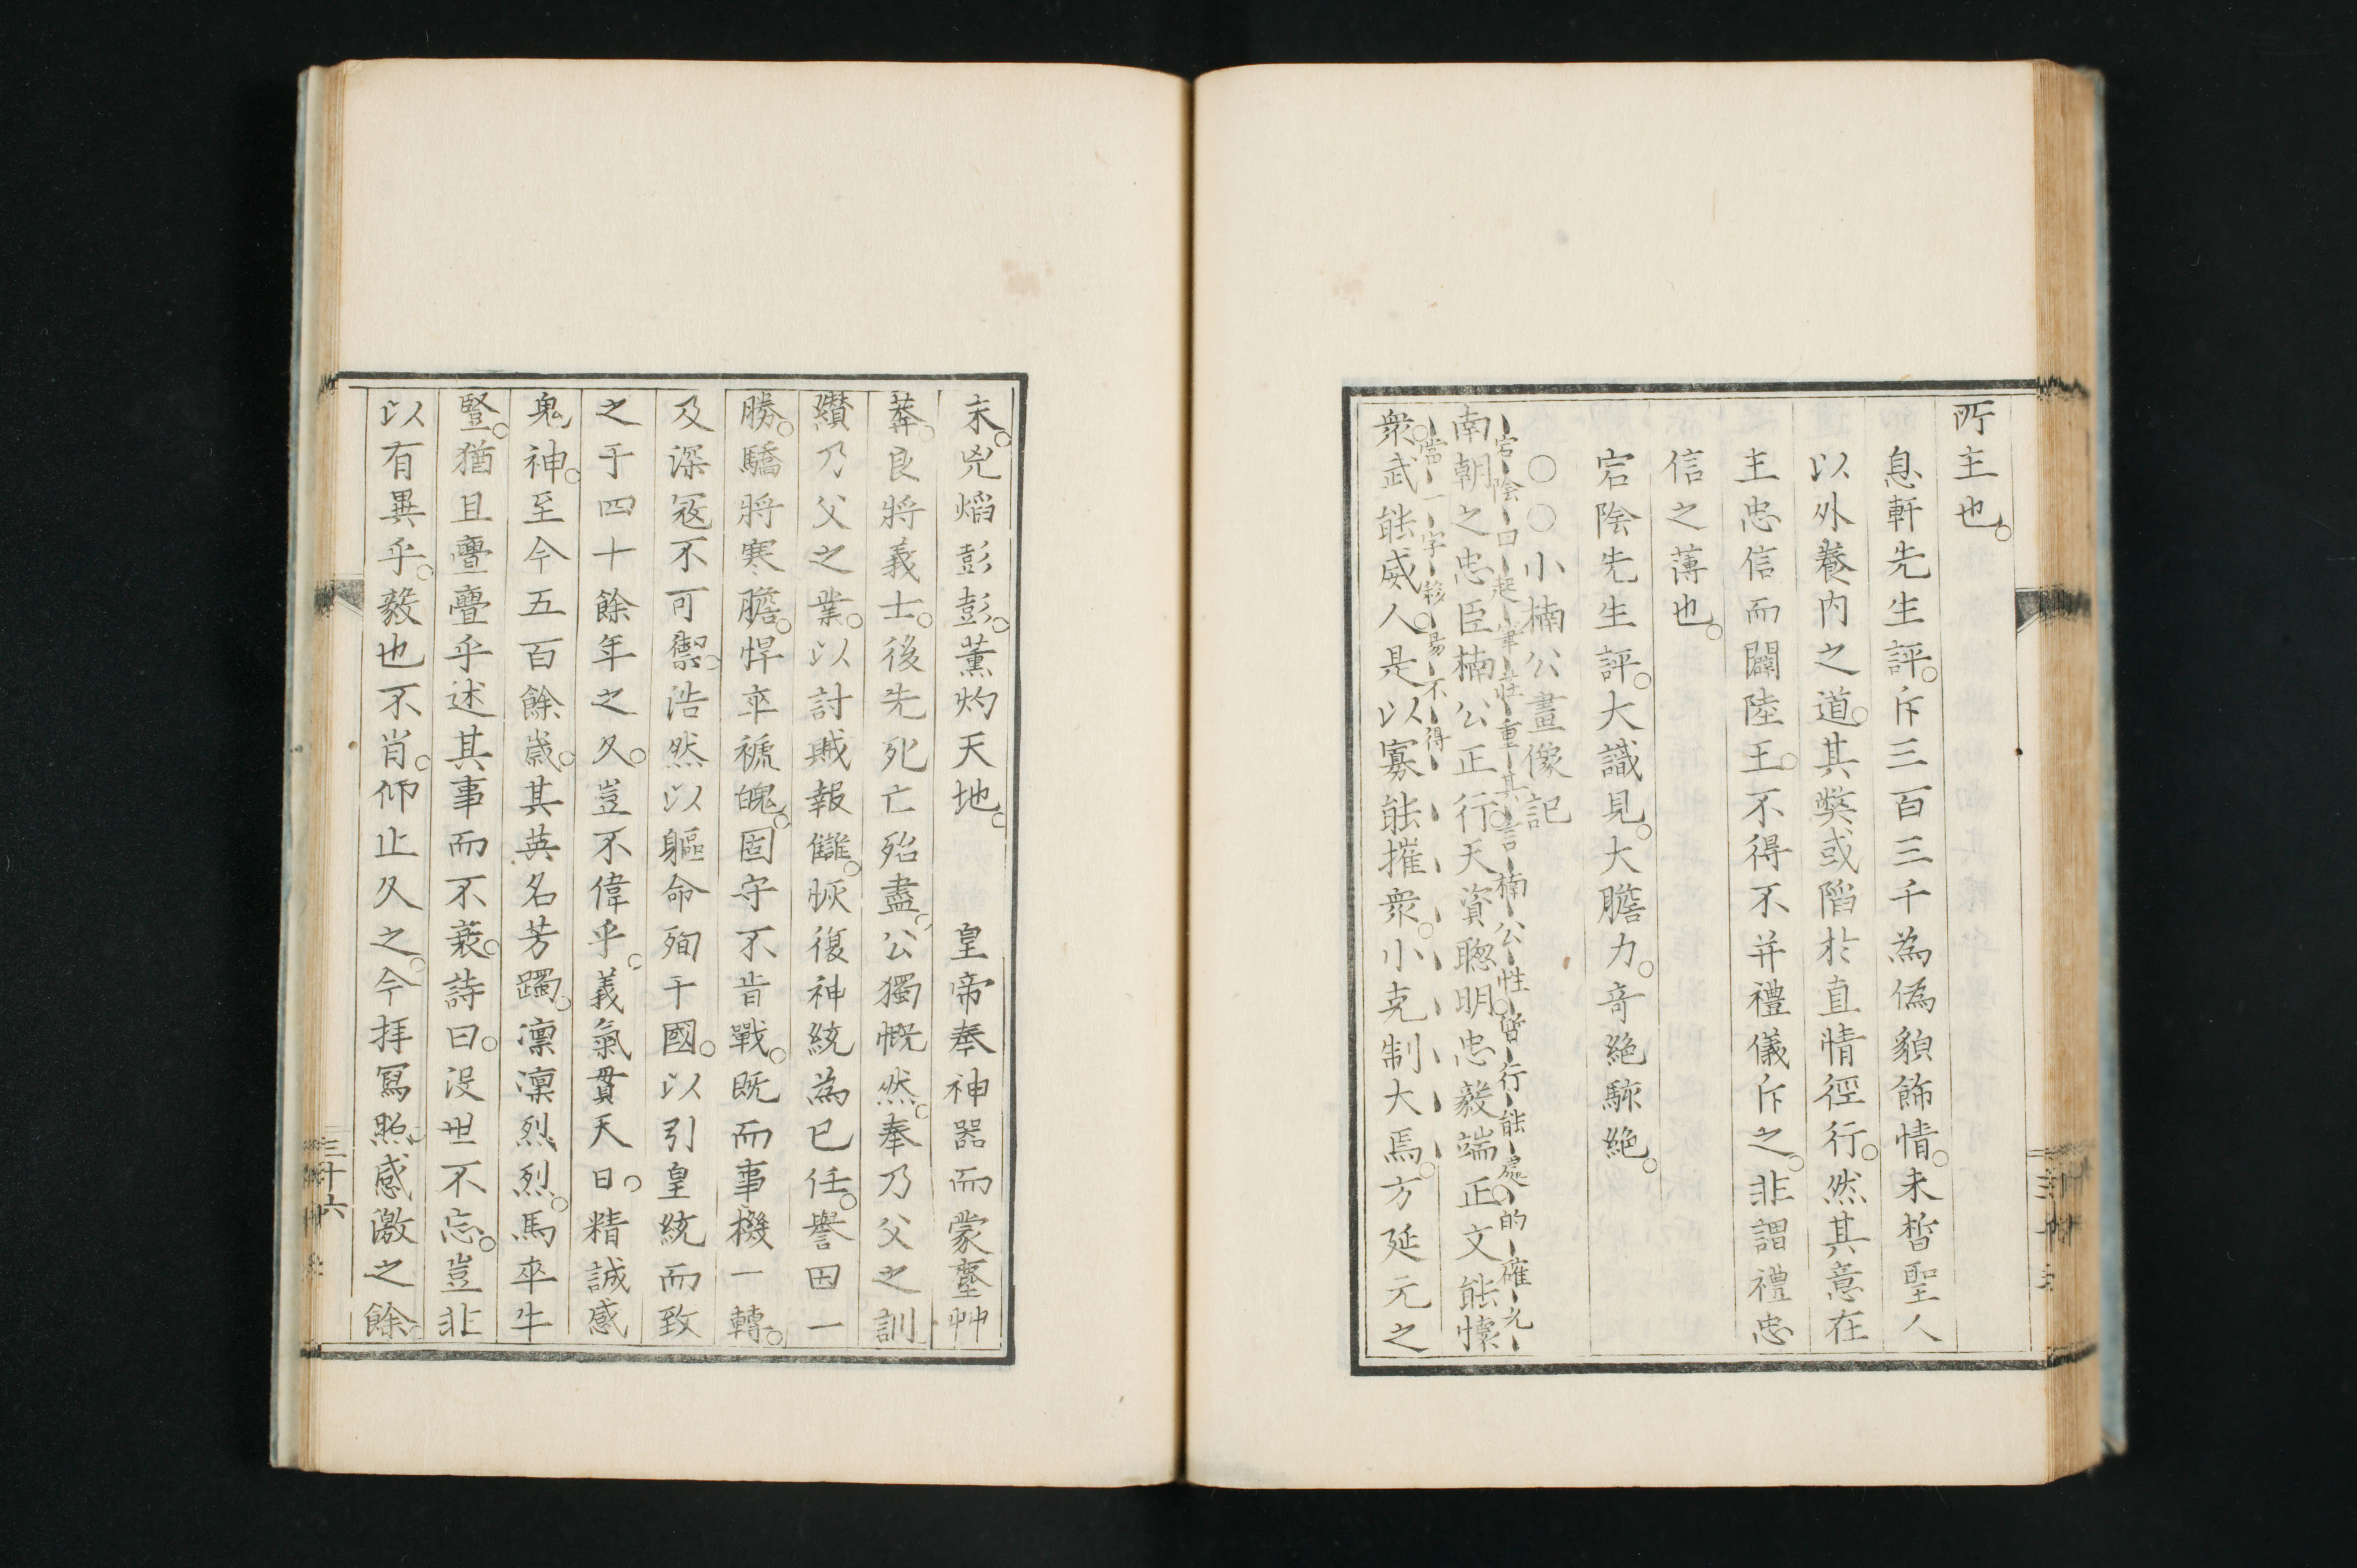 所主也。
息軒先生評。斥三百三千為偽貌飾情。未皙聖人
以外養内之道。其獘或陷於直情徑行。然其意在
主忠信而闢陸王。不得不并禮儀斥之。非謂禮忠
信之薄也。
宕陰先生評。大識見。大膽力。奇絶駭絶。
〇〇小楠公畫像記
宕陰曰起筆莊重其言楠公性質行能處的確允
南朝之忠臣楠公正行。天資聰明。忠毅端正。文能懷
當一字移易不得
衆。武能威人。是以寡能摧衆。小克制大焉。方延元之
末。兇熖彭彭。薰灼天地。皇帝奉神器而蒙塵艸
莽。良將義士。後先死亡殆盡。公獨慨然。奉乃父之訓
纘乃父之業。以討賊報讎。恢復神統為己任。譽因一
勝。驕將寒膽。悍卒褫魄。固守不肯戰。既而事機一轉。
及深寇不可禦。浩然以軀命殉于國。以引皇統而致
之于四十餘年之久。豈不偉乎。義氣貫天日。精誠感
鬼神。至今五百餘歲。其英名芳躅。凛凛烈烈。馬卒牛
豎。猶且亹亹乎述其事而不衰。詩曰。没世不忘。豈非
以有異乎。毅也不肖。仰止久之。今拝冩照。感激之餘。
三十六